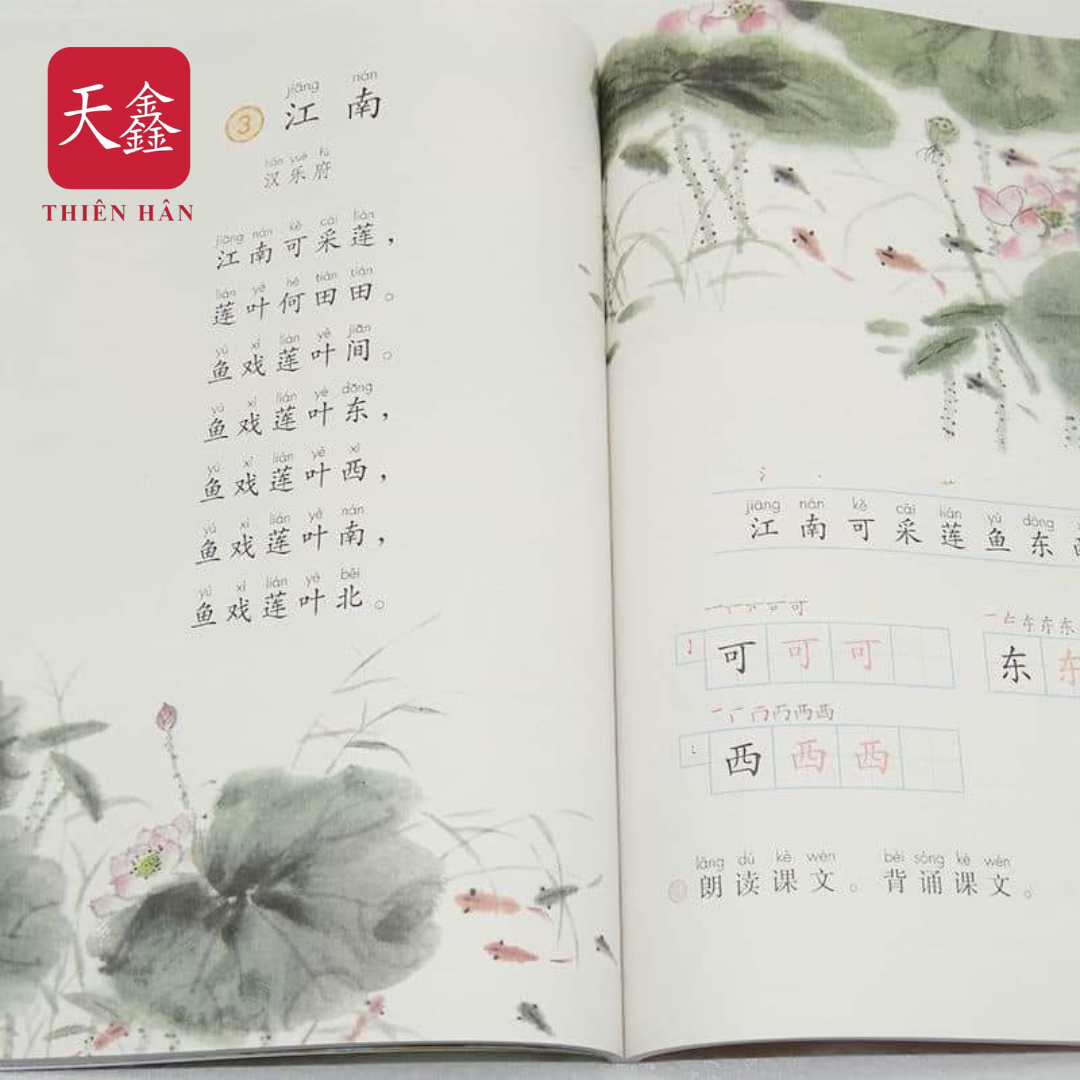 天鑫
THIÊN HÂN
jiāng nán
3 江南
hàn yuè fǔ
汉乐府
jiāng nán kě cǎi lián
江南可采莲，
lián yè hé tián tián
莲叶何田田。
yú xì lián yè jiān
鱼戏莲叶间。
yú xì lián yè dōng
鱼戏莲叶东，
yú xì lián yè xī
鱼戏莲叶西，
yú xì lián yè nán
鱼戏莲叶南，
yú xì lián yè běi
鱼戏莲叶北。
jiāng nán kě cǎi lián yú dōng
江南可采莲鱼东
可可可
东东
西西西
lǎng dú kè wén bèi sòng kè wén
朗读课文。背诵课文。